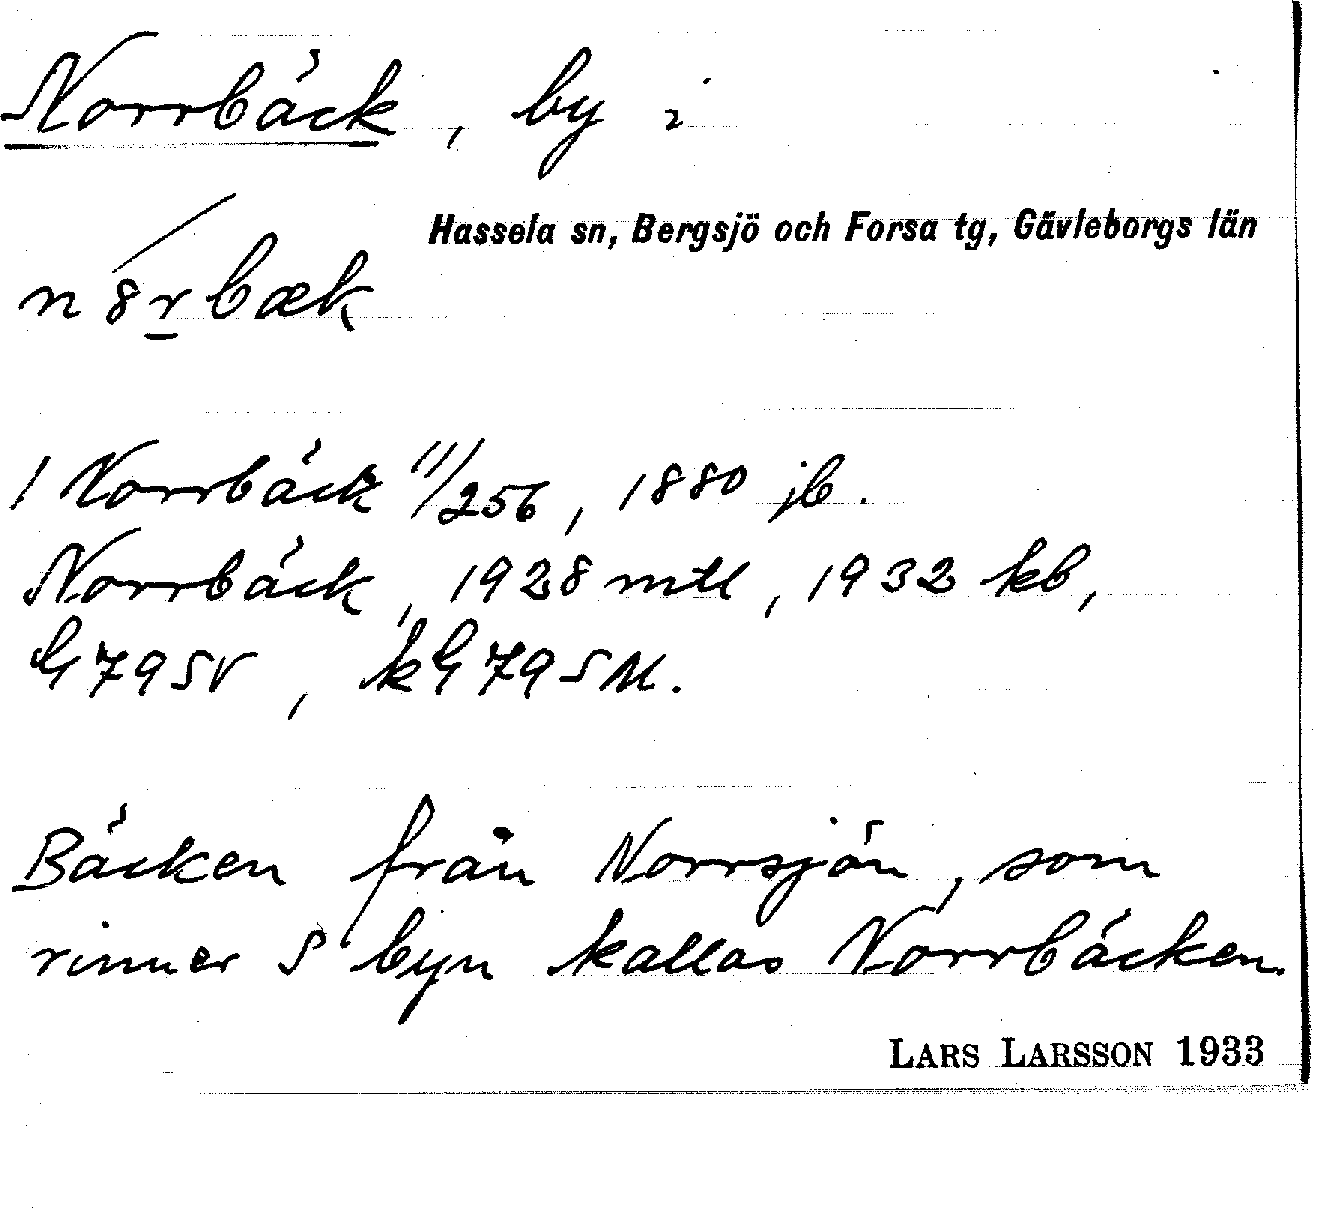 Norrbäck, by i
Hassela sn, Bergsjö och Forsa tg, Gävleborgs län
n8rbæk
1 Norrbäck 11/256, 1880 jb.
Norrbäck, 1928 mtl, 1932 kb,
G 79 SV, kG 79 SM.
Bäcken från Norrsjön, som
rinner S byn kallas Norrbäcken.
LARS LARSSON 1933